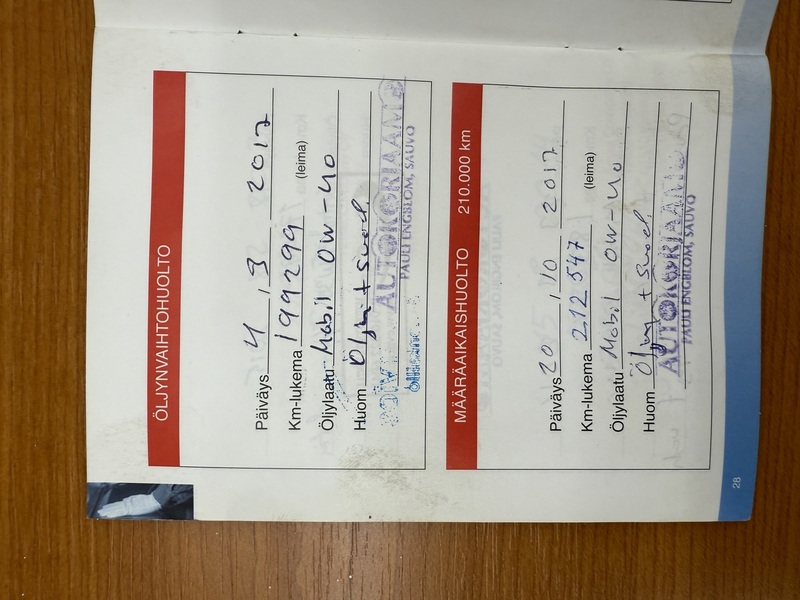 ÖLJYNVAIHTOHUOLTO
Päiväys 4 . 3 2017
Km-lukema 199299 (leima)
Öljylaatu Mobil 0W-40
Huom Öljy + Suod.
AUTOKORJAAMO
PAULI ENGBLOM, SAUVO
MÄÄRÄAIKAISHUOLTO 210.000 km
Päiväys 20 . 10 2017
Km-lukema 212 547 (leima)
Öljylaatu Mobil 0W-40
Huom Öljy + Suod.
AUTOKORJAAMO
PAULI ENGBLOM, SAUVO
28